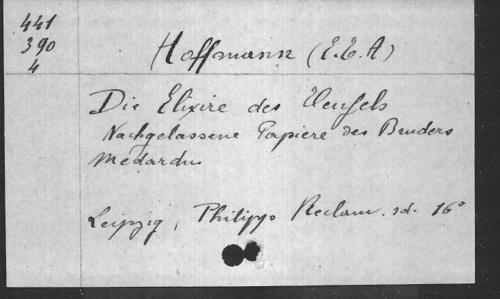 441
390
4
Hoffmann (E.T.A)
Die Elixire des Teufels
Nachgelassene Papiere des Bruders
Medardus
Leipzig, Philipp Reclam. sd. 16°